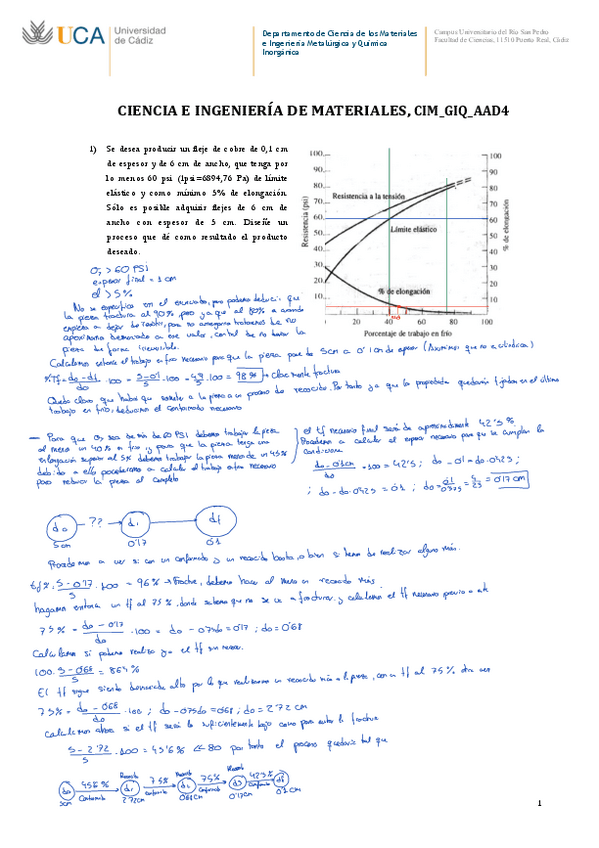 UCA
Universidad
de Cádiz
Departamento de Ciencia de los Materiales
e Ingeniería Metalúrgica y Química
Inorgánica
Campus Universitario del Río San Pedro
Facultad de Ciencias, 11510 Puerto Real, Cádiz
CIENCIA E INGENIERÍA DE MATERIALES, CIM_GIQ_AAD4
1) Se desea producir un fleje de cobre de 0,1 cm
de espesor y de 6 cm de ancho, que tenga por
lo menos 60 psi (1psi=6894,76 Pa) de límite
elástico y como mínimo 5% de elongación.
Sólo es posible adquirir flejes de 6 cm de
ancho con espesor de 5 cm. Diseñe un
proceso que dé como resultado el producto
deseado.
100
90
80
70
60
50
40
30
20
10
Resistencia (psi)
Resistencia a la tensión
Límite elástico
% de elongación
100
90
80
70
60
50
40
30
20
10
% de elongación
0 20 40 60 80 100
Porcentaje de trabajo en frío
> 60 PSI
espesor final =
el > 5%
No se especifica en el enunciado, pero podemos deducir que
la pieza fractura al 90%, pero ya que al 80% a
empieza a dejar de
pieza de forma irreversible.
Calculamos entonces el trabajo en frío necesario para que la pieza pase de 5cm a 0'1cm de espesor
%Tf = do - df / do · 100 = 5 - 0'1 / 5 · 100 = 4'9 / 5 · 100 = 98% → claramente fractura
Queda claro que habrá que someter a la pieza a un proceso de recocido. Por tanto ya que la propiedades quedarán fijadas en el último
trabajo en frío, deducimos el conformado necesario
- Para que sea de más de 60 PSI debemos trabajar la pieza
al menos un 40% en frío y para que la pieza tenga una
elongación superior al 5% debemos trabajar la pieza menos de un 45%
debido a ello procederemos a calcular el trabajo en frío necesario
para reducir la pieza al completo
el tf necesario final será de aproximadamente 42'5%
Procedemos a calcular el espesor necesario para que se cumplan las
condiciones
do - 0'1cm / do · 100 = 42'5 ; do - 0'1 = do · 0'425 ;
; do - do · 0'425 = 0'1 ; do = 0'1 / 0'575 = 4 / 23 = 0'17 cm
do - ?? → d1 → df
5cm 0'17 0'1
Procedemos a ver si con un conformado y un recocido basta, o bien si hemos de realizar alguno más.
tf% : 5 - 0'17 / 5 · 100 = 96% → Fractura, debemos hacer al menos un recocido más
hagamos entonces un tf al 75%, donde sabemos que no se va a fracturar y calculemos el tf necesario previo a este
75% = do - 0'17 / do · 100 = do - 0'75do = 0'17 ; do = 0'68
Calculamos si podemos realizar ya el tf sin recocer.
100 · 5 - 0'68 / 5 = 86'4%
El tf sigue siendo demasiado alto por lo que realizaremos un recocido más a la pieza, con un tf al 75% otra vez
75% = do - 0'68 / do · 100 ; do - 0'75do = 0'68 ; do = 2'72cm
Calculemos ahora si el tf será lo suficientemente bajo como para evitar la fractura
5 - 2'72 / 5 · 100 = 45'6% < 80 por tanto el proceso quedaría tal que
do 45'6% Conformado Recocido d1 75% Conformado Recocido d2 75% Conformado Recocido d3 42'5% Conformado df
5cm 2'72cm 0'68cm 0'17cm 0'1cm
1